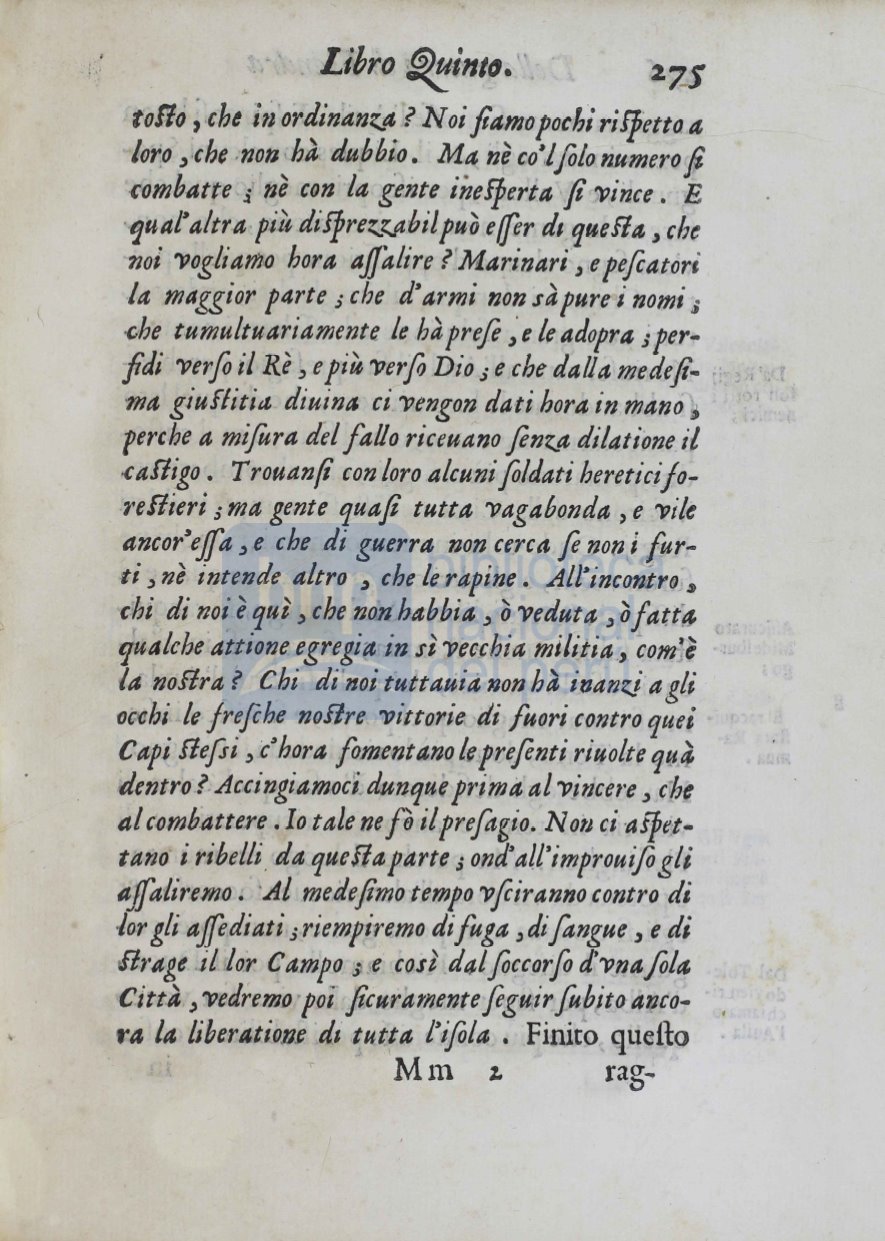 Libro Quinto. 275
toſto, che in ordinanza? Noi ſiamo pochi riſpetto a
loro, che non hà dubbio. Ma nè co'l ſolo numero ſi
combatte; nè con la gente ineſperta ſi vince. E
qual'altra più diſprezzabil può eſſer di queſta, che
noi vogliamo hora aſſalire? Marinari, e peſcatori
la maggior parte; che d'armi non sà pure i nomi;
che tumultuariamente le hà preſe, e le adopra; per-
fidi verſo il Rè, e più verſo Dio; e che dalla medeſi-
ma giuſtitia diuina ci vengon dati hora in mano,
perche a miſura del fallo riceuano ſenza dilatione il
caſtigo. Trouanſi con loro alcuni ſoldati heretici fo-
reſtieri; ma gente quaſi tutta vagabonda, e vile
ancor'eſſa, e che di guerra non cerca ſe non i fur-
ti, nè intende altro, che le rapine. All'incontro,
chi di noi è quì, che non habbia, ò veduta, ò fatta
qualche attione egregia in sì vecchia militia, com'è
la noſtra? Chi di noi tuttauia non hà inanzi a gli
occhi le freſche noſtre vittorie di fuori contro quei
Capi ſteſsi, c'hora fomentano le preſenti riuolte quà
dentro? Accingiamoci dunque prima al vincere, che
al combattere. Io tale ne fò il preſagio. Non ci aſpet-
tano i ribelli da queſta parte; ond'all'improuiſo gli
aſſaliremo. Al medeſimo tempo vſciranno contro di
lor gli aſſediati; riempiremo di fuga, di ſangue, e di
ſtrage il lor Campo; e così dal ſoccorſo d'vna ſola
Città, vedremo poi ſicuramente ſeguir ſubito anco-
ra la liberatione di tutta l'iſola. Finito queſto
Mm 2 rag-